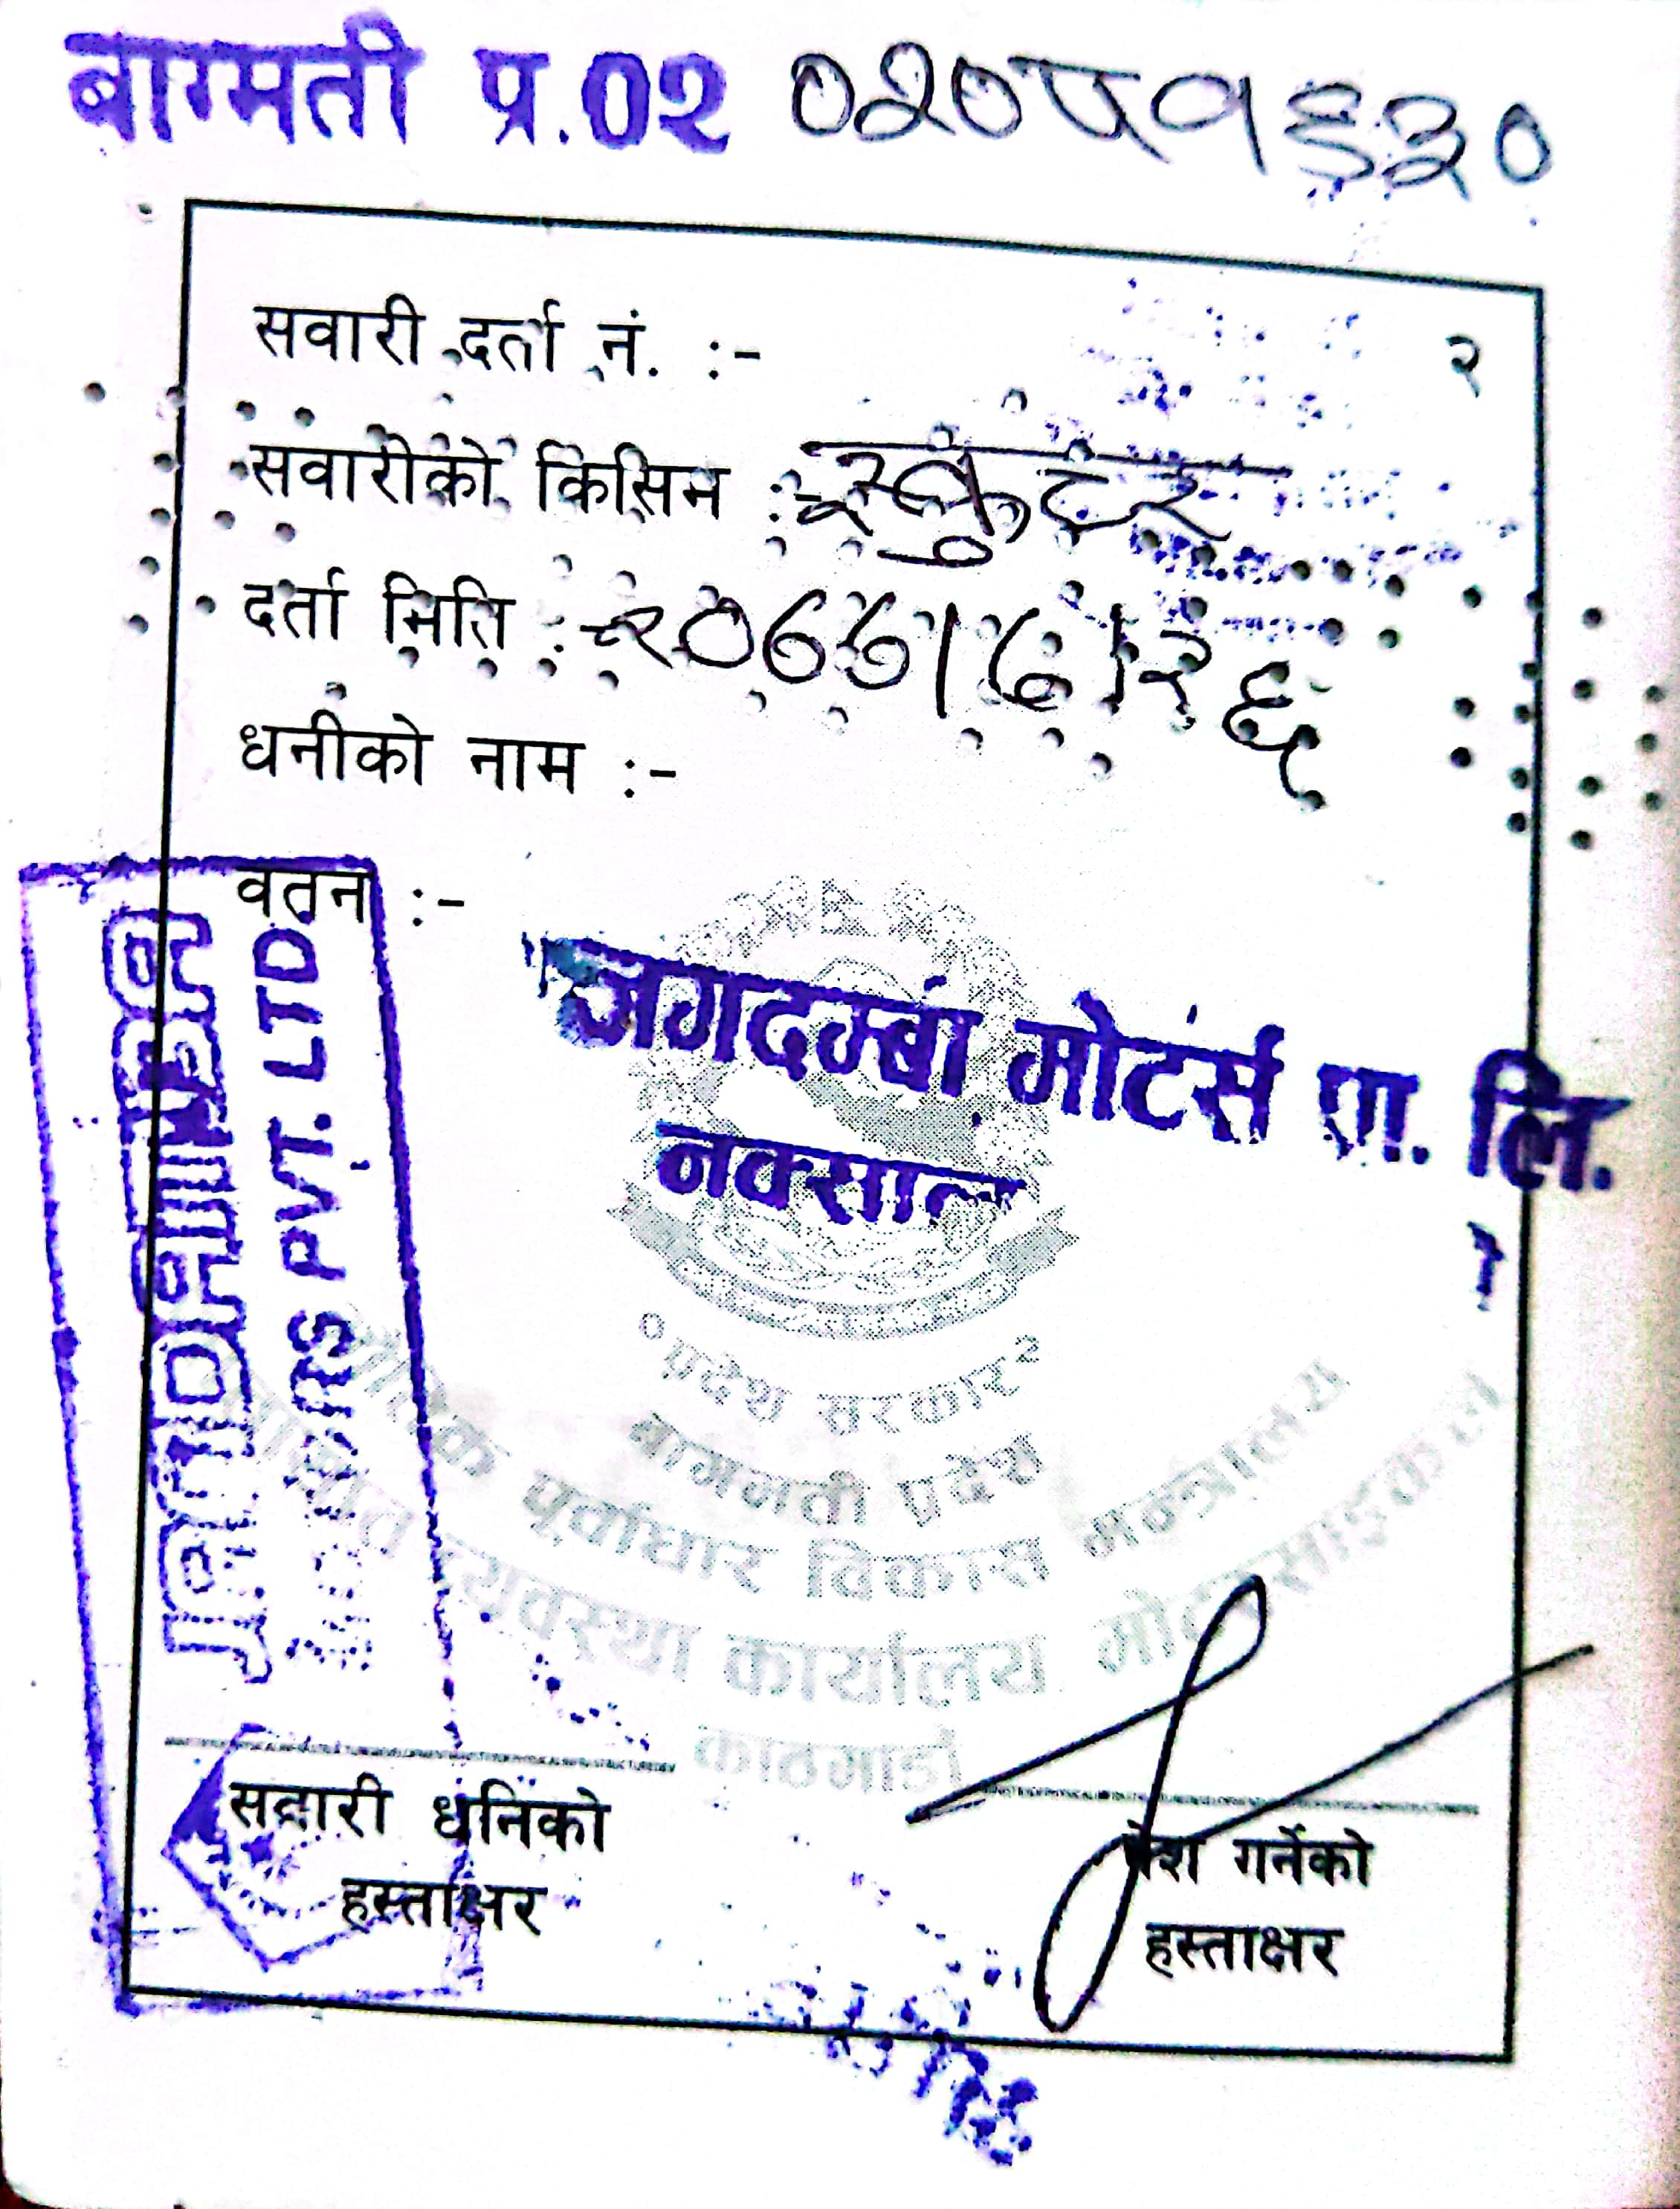 बाग्मती प्र.02 ०२०प९६३०
२
सवारी दर्ता नं. :-
सवारीको किसिम :- स्कुटर
दर्ता मिति :- २०७७।८।२६
धनीको नाम :-
वतन :-
जगदम्बा मोटर्स प्रा. लि.
नक्साल
JAGDAMBA
MOTORS PVT. LTD
प्रदेश सरकार
बागमती प्रदेश
भौतिक पूर्वाधार विकास मन्त्रालय
यातायात व्यवस्था कार्यालय मोटरसाइकल
काठमाडौं
सवारी धनिको
हस्ताक्षर
पेश गर्नेको
हस्ताक्षर